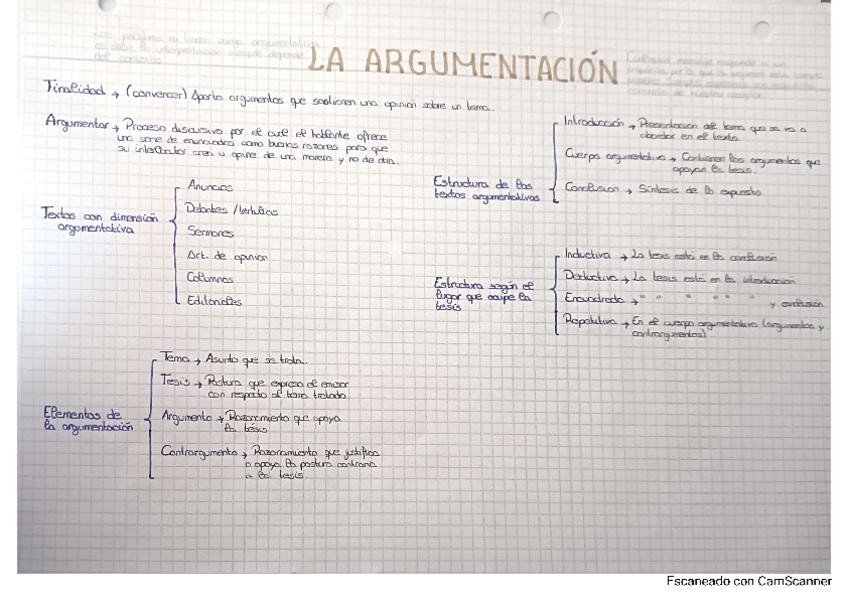 LA ARGUMENTACIÓN
Finalidad → (convencer) Aporta argumentos que sostienen una opinión sobre un tema.
Argumentar → Proceso discursivo por el cual el hablante ofrece
una serie de enunciados como buenas razones para que
su interlocutor crea u opine de una manera y no de otra.
Textos con dimensión
argumentativa
Anuncios
Debates / tertulias
Sermones
Art. de opinión
Columnas
Editoriales
Elementos de
la argumentación
Tema → Asunto que se trata.
Tesis → Postura que expresa el emisor
con respecto al tema tratado.
Argumento → Razonamiento que apoya
la tesis
Contrargumento → Razonamiento que justifica
o apoya la postura contraria
a la tesis.
Estructura de los
textos argumentativos
Introducción → Presentación del tema que se va a
abordar en el texto.
Cuerpo argumentativo → Contienen los argumentos que
apoyan la tesis.
Conclusión → Síntesis de lo expuesto
Estructura según el
lugar que ocupe la
tesis
Inductiva → La tesis está en la conclusión
Deductiva → La tesis está en la introducción
Encuadrada → " " " " " y conclusión
Repetitiva → En el cuerpo argumentativo (argumentos y
contrargumentos)
Escaneado con CamScanner